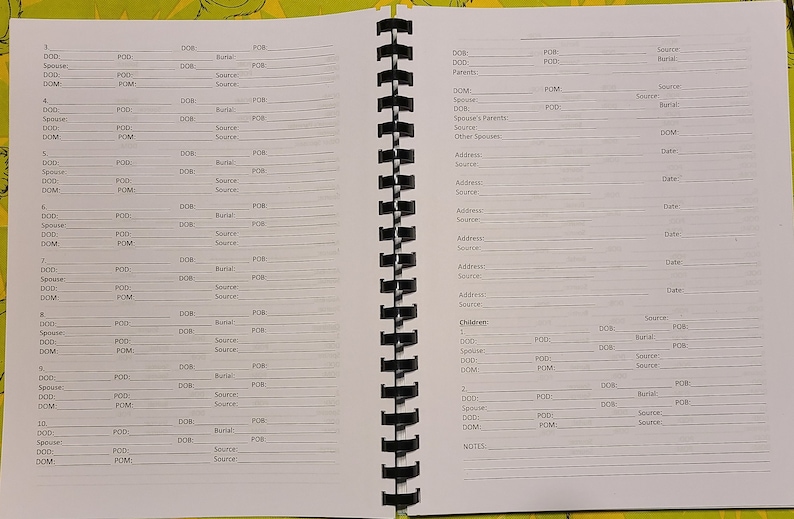 3. DOB: POB:
DOD: POD: Burial:
Spouse: DOB: POB:
DOD: POD: Source:
DOM: POM: Source:
4. DOB: POB:
DOD: POD: Burial:
Spouse: DOB: POB:
DOD: POD: Source:
DOM: POM: Source:
5. DOB: POB:
DOD: POD: Burial:
Spouse: DOB: POB:
DOD: POD: Source:
DOM: POM: Source:
6. DOB: POB:
DOD: POD: Burial:
Spouse: DOB: POB:
DOD: POD: Source:
DOM: POM: Source:
7. DOB: POB:
DOD: POD: Burial:
Spouse: DOB: POB:
DOD: POD: Source:
DOM: POM: Source:
8. DOB: POB:
DOD: POD: Burial:
Spouse: DOB: POB:
DOD: POD: Source:
DOM: POM: Source:
9. DOB: POB:
DOD: POD: Burial:
Spouse: DOB: POB:
DOD: POD: Source:
DOM: POM: Source:
10. DOB: POB:
DOD: POD: Burial:
Spouse: DOB: POB:
DOD: POD: Source:
DOM: POM: Source:
DOB: POB: Source:
DOD: POD: Burial:
Parents:
DOM: POM: Source:
Spouse: Source:
DOB: POD: Burial:
Spouse's Parents:
Source:
Other Spouses: DOM:
Address: Date:
Source:
Address: Date:
Source:
Address: Date:
Source:
Address: Date:
Source:
Address: Date:
Source:
Address: Date:
Source:
Children: Source:
1. DOB: POB:
DOD: POD: Burial:
Spouse: DOB: POB:
DOD: POD: Source:
DOM: POM: Source:
2. DOB: POB:
DOD: POD: Burial:
Spouse: DOB: POB:
DOD: POD: Source:
DOM: POM: Source:
NOTES: